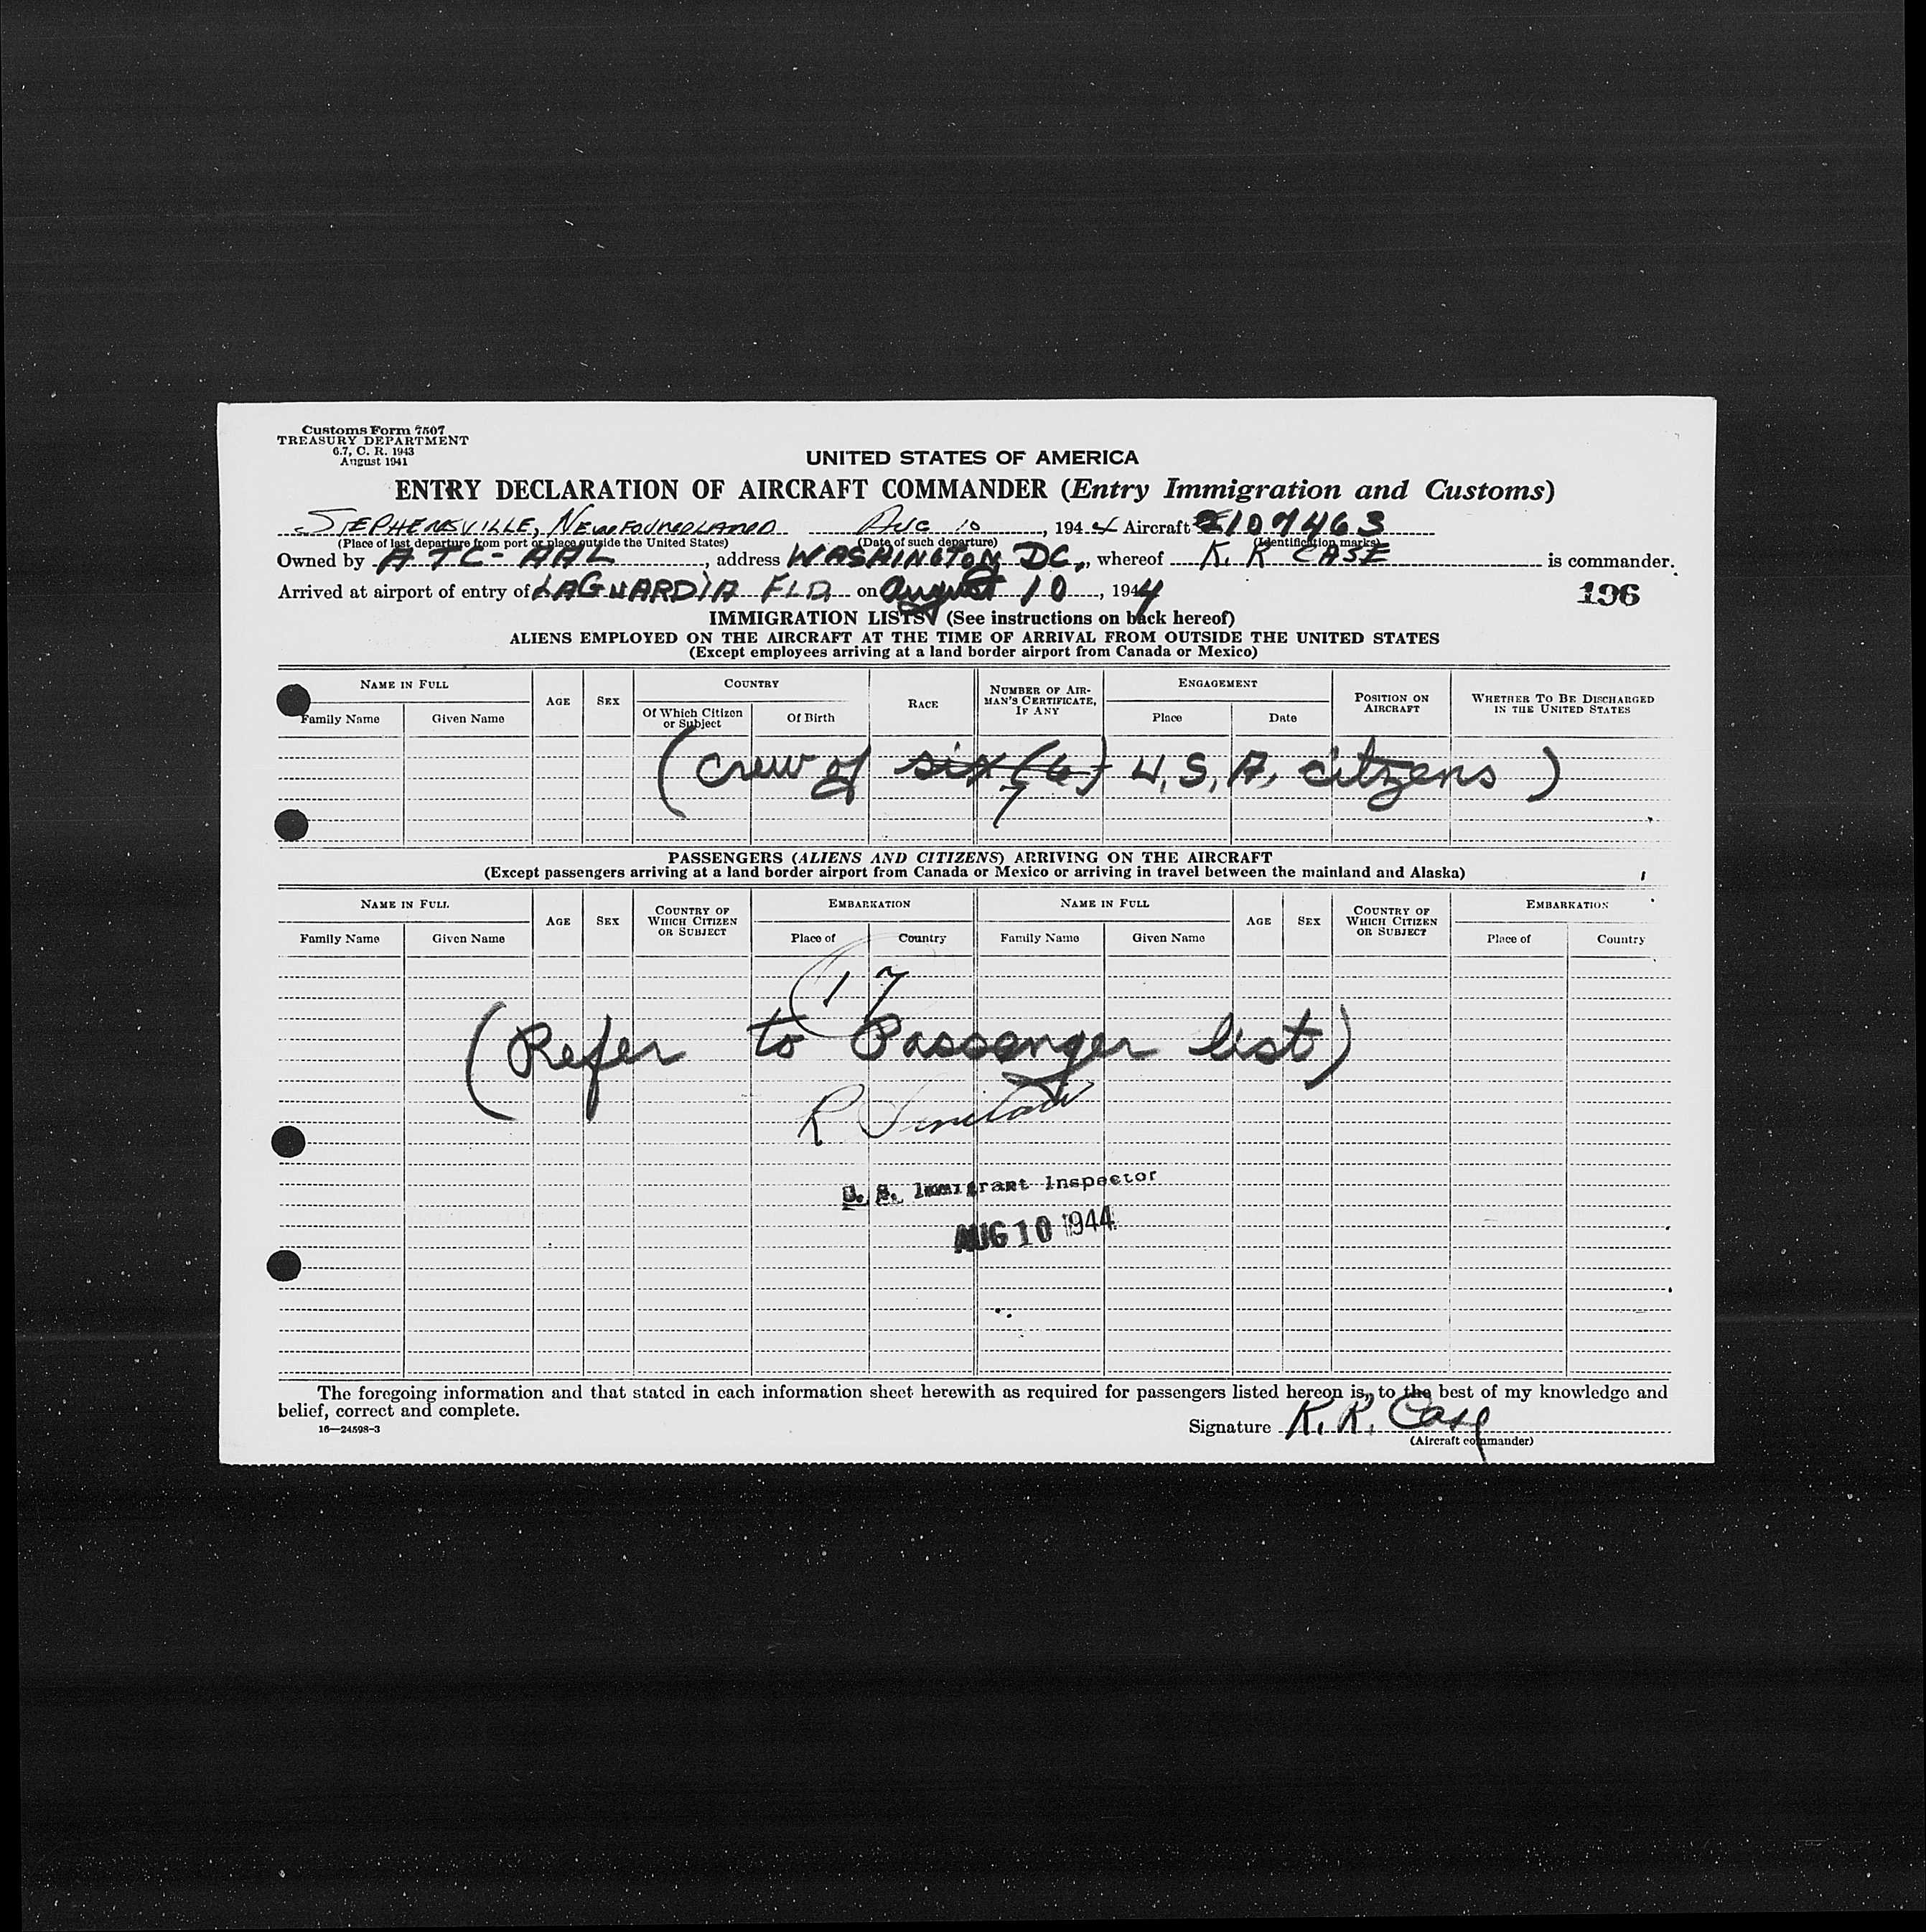 Customs Form 7507
TREASURY DEPARTMENT
6.7, C. R. 1943
August 1941
UNITED STATES OF AMERICA
ENTRY DECLARATION OF AIRCRAFT COMMANDER (Entry Immigration and Customs)
STEPHENSVILLE, NEWFOUNDLAND AUG 10, 1944 Aircraft 107463
(Place of last departure from port or place outside the United States) (Date of such departure) (Identification marks)
Owned by ATC-AAL, address WASHINGTON DC., whereof K. R CASE is commander.
Arrived at airport of entry of LAGUARDIA FLD. on August 10, 1944 196
IMMIGRATION LISTS (See instructions on back hereof)
ALIENS EMPLOYED ON THE AIRCRAFT AT THE TIME OF ARRIVAL FROM OUTSIDE THE UNITED STATES
(Except employees arriving at a land border airport from Canada or Mexico)
NAME IN FULL AGE SEX COUNTRY RACE NUMBER OF AIRMAN'S CERTIFICATE, IF ANY ENGAGEMENT POSITION ON AIRCRAFT WHETHER TO BE DISCHARGED IN THE UNITED STATES
Family Name Given Name Of Which Citizen or Subject Of Birth Place Date
(Crew of six (6) U.S.A. citzens)
7
PASSENGERS (ALIENS AND CITIZENS) ARRIVING ON THE AIRCRAFT
(Except passengers arriving at a land border airport from Canada or Mexico or arriving in travel between the mainland and Alaska)
NAME IN FULL AGE SEX COUNTRY OF WHICH CITIZEN OR SUBJECT EMBARKATION NAME IN FULL AGE SEX COUNTRY OF WHICH CITIZEN OR SUBJECT EMBARKATION
Family Name Given Name Place of Country Family Name Given Name Place of Country
17
(Refer to Passenger list)
R
U. S. Immigrant Inspector
AUG 10 1944
The foregoing information and that stated in each information sheet herewith as required for passengers listed hereon is, to the best of my knowledge and
belief, correct and complete.
16—24598-3
Signature K. R. Case
(Aircraft commander)